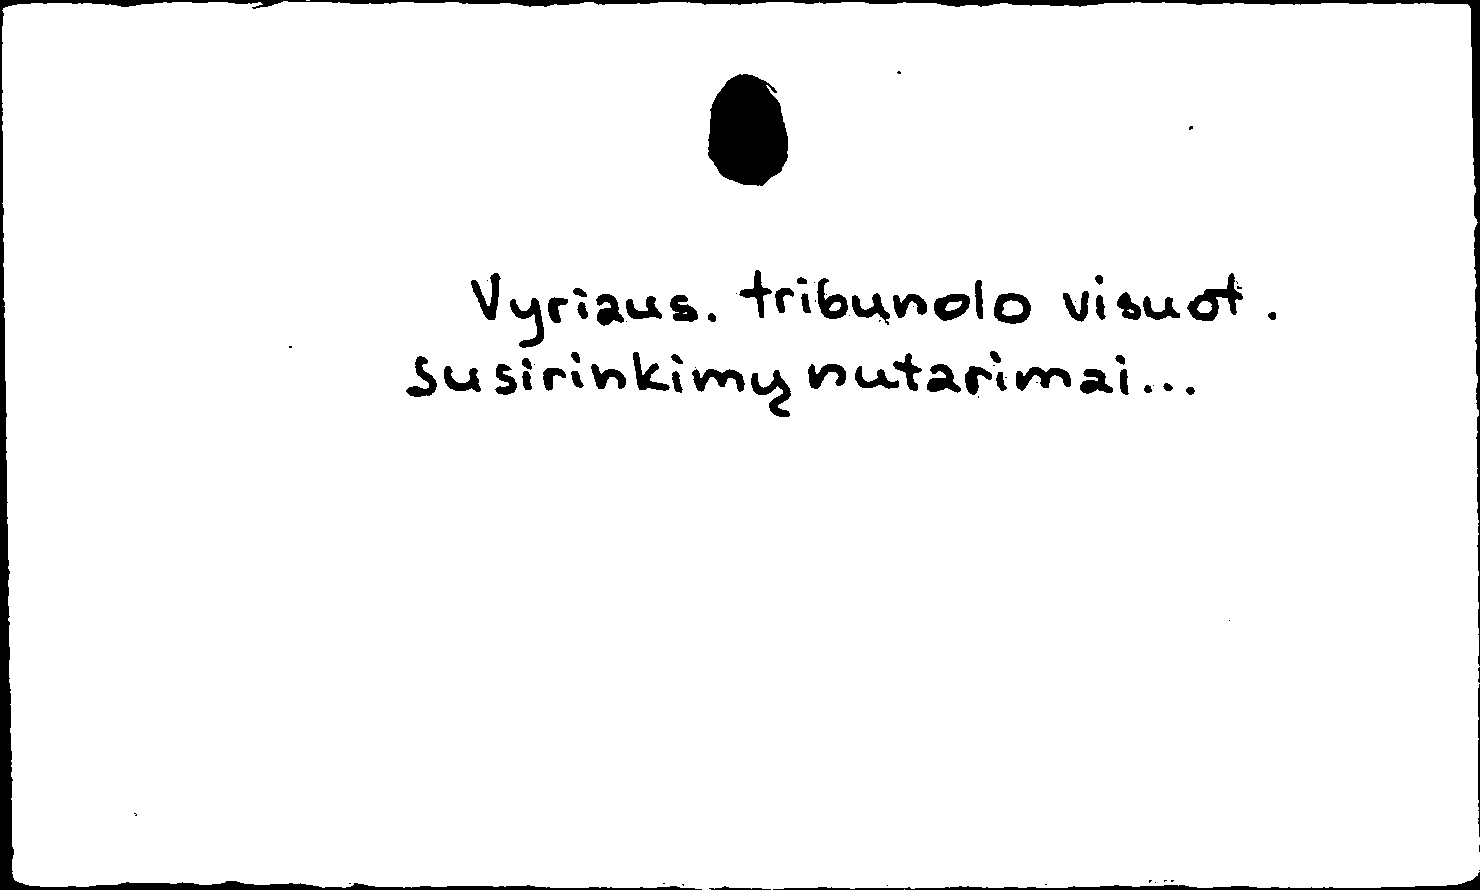 Vyriaus. tribunolo visuot.
susirinkimų nutarimai...